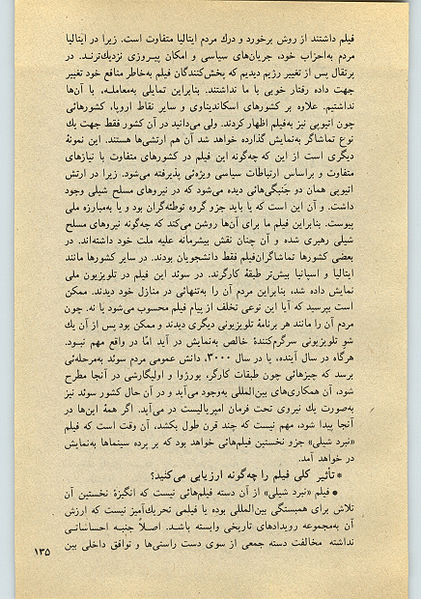 فیلم داشتند از روش برخورد و درك مردم ایتالیا متفاوت است. زیرا در ایتالیا
مردم به‌احزاب خود، جریان‌های سیاسی و امکان پیـروزی نزدیك‌ترنـد. در
پرتقال پس از تغییر رژیم دیدیم که پخش‌کنندگان فیلم به‌خاطر منافع خود تغییر
جهت داده رفتار خوبی با ما نداشتند. بنابراین تمایلی به‌معاملـه، با آن‌ها
نداشتیم. علاوه بر کشورهای اسکاندیناوی و سایر نقاط اروپا، کشورهائی
چون اتیوپی نیز به‌فیلم اظهار کردند. ولی می‌دانید در آن کشور فقط جهت یك
نوع تماشاگر به‌نمایش گذارده خواهد شد آن هم ارتشی‌ها هستند. این نمونۀ
دیگری است از این که چه‌گونه این فیلم در کشورهای متفاوت با نیازهای
متفاوت و براساس ارتباطات سیاسی ویژه‌ئی پذیرفته می‌شود. زیرا در ارتش
اتیوپی همان دو جنبگی‌هائی دیده می‌شود که در نیروهای مسلح شیلی وجود
داشت. و آن این است که یا باید جزو گروه توطئه‌گران بود و یا به‌مبارزه ملی
پیوست. بنابراین فیلم ما برای آن‌ها روشن می‌کند که چه‌گونه نیروهای مسلح
شیلی رهبری شده و آن چنان نقش بیشرمانه علیه ملت خود داشته‌اند. در
بعضی کشورها تماشاگران‌فیلم فقط دانشجویان بودند. در سایر کشورها مانند
ایتالیا و اسپانیا بیش‌تر طبقۀ کارگرند. در سوئد این فیلم در تلویزیون ملی
نمایش داده شد، بنابراین مردم آن را به‌تنهائی در منازل خود دیدند. ممکن
است بپرسید که آیا این نوعی تخلف از پیام فیلم محسوب می‌شود یا نه. چون
مردم آن را مانند هر برنامۀ تلویزیونی دیگری دیدند و ممکن بود پس از آن یك
شوِ تلویزیونی سرگرم‌کنندۀ خالص به‌نمایش در آید امّا در واقع مهم نبـود.
هرگاه در سال آینده، یا در سال ۳۰۰۰، دانش عمومی مردم سوئد به‌مرحله‌ئی
برسد که چیزهائی چون طبقات کارگر، بورژوا و اولیگارشی در آنجا مطرح
شود، آن همکاری‌های بین‌المللی به‌وجود می‌آید و در آن حال کشور سوئد نیز
به‌صورت یك نیروی تحت فرمان امپریالیست در می‌آید. اگر همۀ این‌ها در
آنجا پیدا شود، مهم نیست که چند قرن طول بکشد، آن وقت است که فیلم
«نبرد شیلی» جزو نخستین فیلم‌هائی خواهد بود که بر پرده سینماها به‌نمایش
در خواهد آمد.
*تأثیر کلی فیلم را چه‌گونه ارزیابی می‌کنید؟
• فیلم «نبرد شیلی» از آن دسته فیلم‌هائی نیست که انگیزۀ نخستین آن
تلاش برای همبستگی بین‌المللی بوده یا فیلمی تحریك‌آمیز نیست که ارزش
آن به‌مجموعه رویدادهای تاریخی وابسته باشـد. اصـلاً جنبـه احساسـاتـی
نداشته مخالفت دسته جمعی از سوی دست راستی‌ها و توافق داخلی بین
۱۳۵